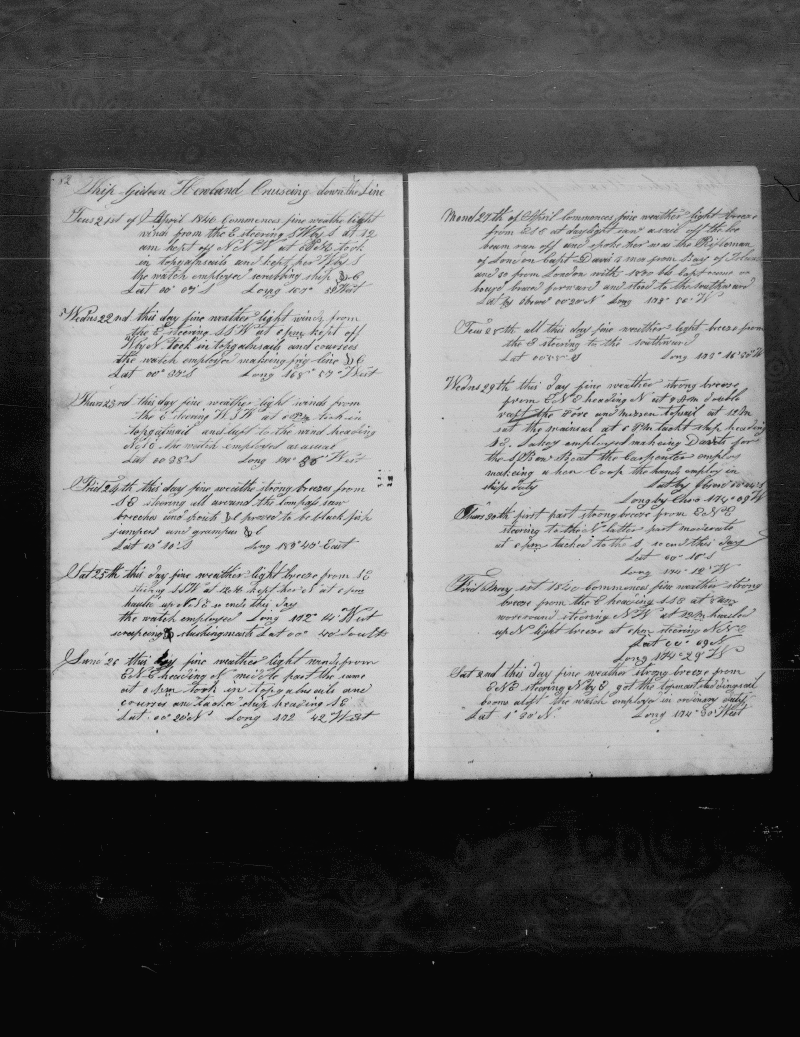 82
Ship Gideon Howland Cruiseing down the Line
Tues 21st of April 1840 Commences fine weathe light
winds from the E steering SW by S at 12
am kept off at 6 PM took
in topgalnsails and kept her W by S
the watch employed scrubbing ship
Lat 00° 07' S Long 167° West
Wedns 22nd this day fine weather light winds from
the E steering at 6 pm kept off
W by N took in topgalnsails and coursees
the watch employed makeing jig line
Lat 00° 37' S Long 168° 57' West
Thurs 23rd this day fine weather light winds from
the E steering W S W at 6 PM took in
topgalnsail and luft to the wind heading
the watch employed as usual
Lat 00 38' S Long 170° 56' West
Frid 24th this day fine weathe strong breezes from
SE steering all around the Compass saw
breeches and spouts proved to be black fish
jumpers and grampus
Lat 00° 10' S Long 40' East
Sat 25th this day fine weather light breeze from SE
steering at 12 M kept her N at 6 pm
hauld up so ends this day
the watch employed Long 172° 41' West
scrapeing slushing masts Lat 00° 40' South
Sund 26 this day fine weather light winds from
ENE heading N middle part the same
at 6 pm took in topgalnsails and
courses and tacked ship heading SE
Lat 00° 20' N Long 172 42 West
Mond 27th of April Commences fine weather light breeze
from ESE at daylight saw a sail off the lee
beam run off and spoke her was the Rifleman
of London Capt Davis 5 mos from Bay of
and 30 from London with 1800 bbls Capt came on
board braced forward and stood to the southward
Lat by Obsvn 00° 20' N Long 173° 50' W
Tues 28th all this day fine weather light breeze from
the E steering to the southward
Lat Long 173° W
Wedns 29th this day fine weather strong breeze
from ENE heading N at 9 am double
reeft the Fore and mizzen topsail at 12 M
set the mainsail at 6 PM tackt ship heading
SE Oakey employed makeing Davits for
the S Bow Boat the Carpenter employ
makeing a hen Coop the hands employ in
ships duty Lat by Obsvn
Long by Chro 174° 09' W
Thurs 30th first part strong breeze from ENE
steering to the N latter part moderate
at 6 pm tacked to the S so ends this days
Lat 00° 10' S
Long 174° 12' W
Frid May 1st 1840 Commences fine weather strong
breeze from the E heading SSE at 8 am
wore round steering NW at 12 M hauled
up N light breeze at 6 pm steering NNE
Lat 00° 09 N
Long 174° 29' W
Sat 2nd this day fine weather strong breeze from
ENE steering N by E got the topmast studingsail
booms aloft the watch employd in ordinary duty
Lat 1° 30' N Long 174° 30' West